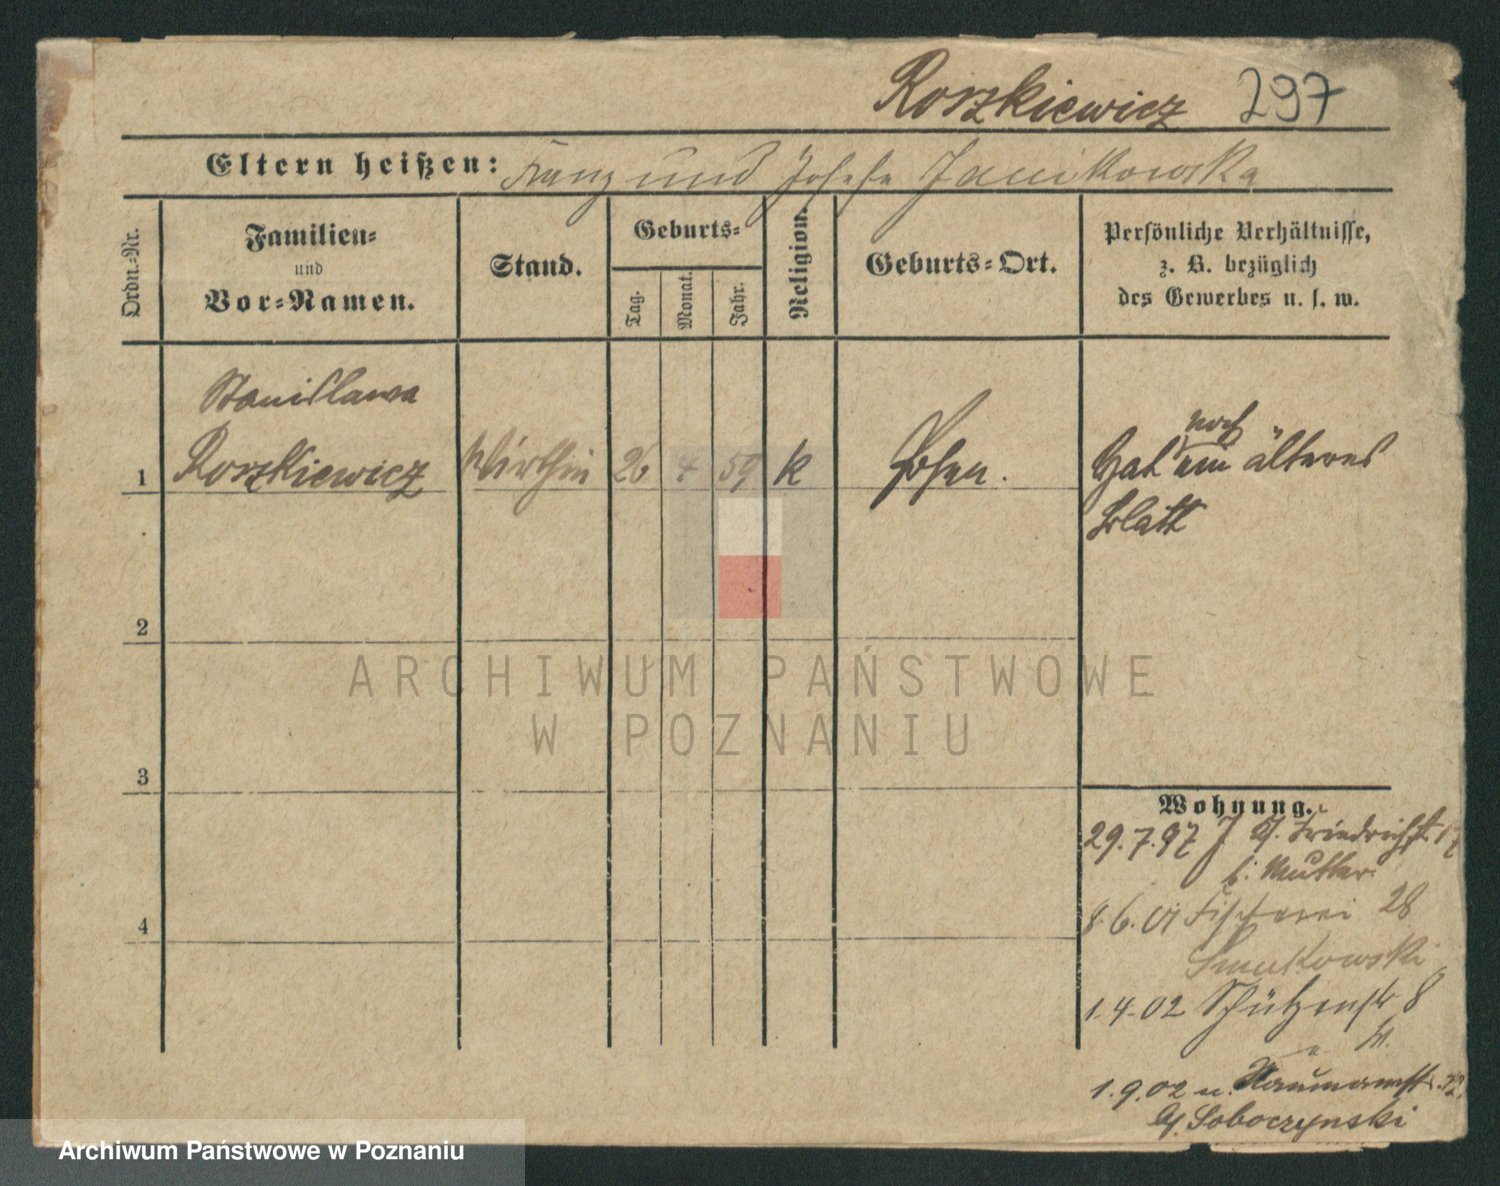 Roszkiewicz 297
Eltern heißen: Franz und Josefa Janikowska
Ordn.-Nr.
Familien-
und
Vor-Namen.
Stand.
Geburts-
Tag.
Monat.
Jahr.
Religion.
Geburts-Ort.
Persönliche Verhältnisse,
z. B. bezüglich
des Gewerbes u. s. w.
Stanislawa
1 Roszkiewicz Wirthin 26 4 59 k Posen.
noch
Hat ein älteres
Blatt
2
3
4
Wohnung.
29.7.97 J Friedrichstr. 17
b. Mutter
8.6.01 Fischerei 28
Smukowski
1.4.02 Schützenstr 8
1.9.02 u. Naumannstr. 12.
Soboczynski
ARCHIWUM PAŃSTWOWE
W POZNANIU
Archiwum Państwowe w Poznaniu